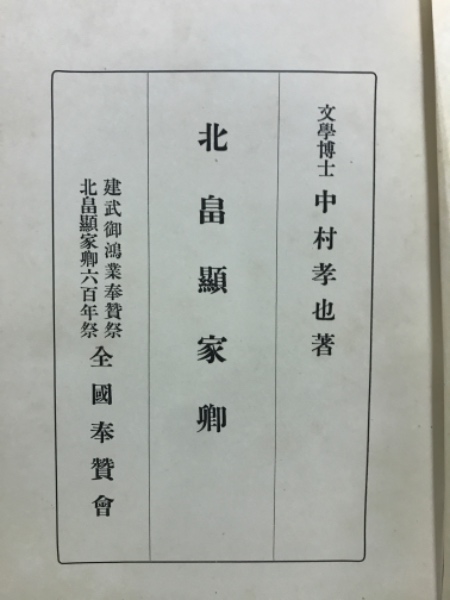 文學博士 中村孝也著
北畠顯家卿
建武御鴻業奉贊祭
北畠顯家卿六百年祭
全國奉贊會